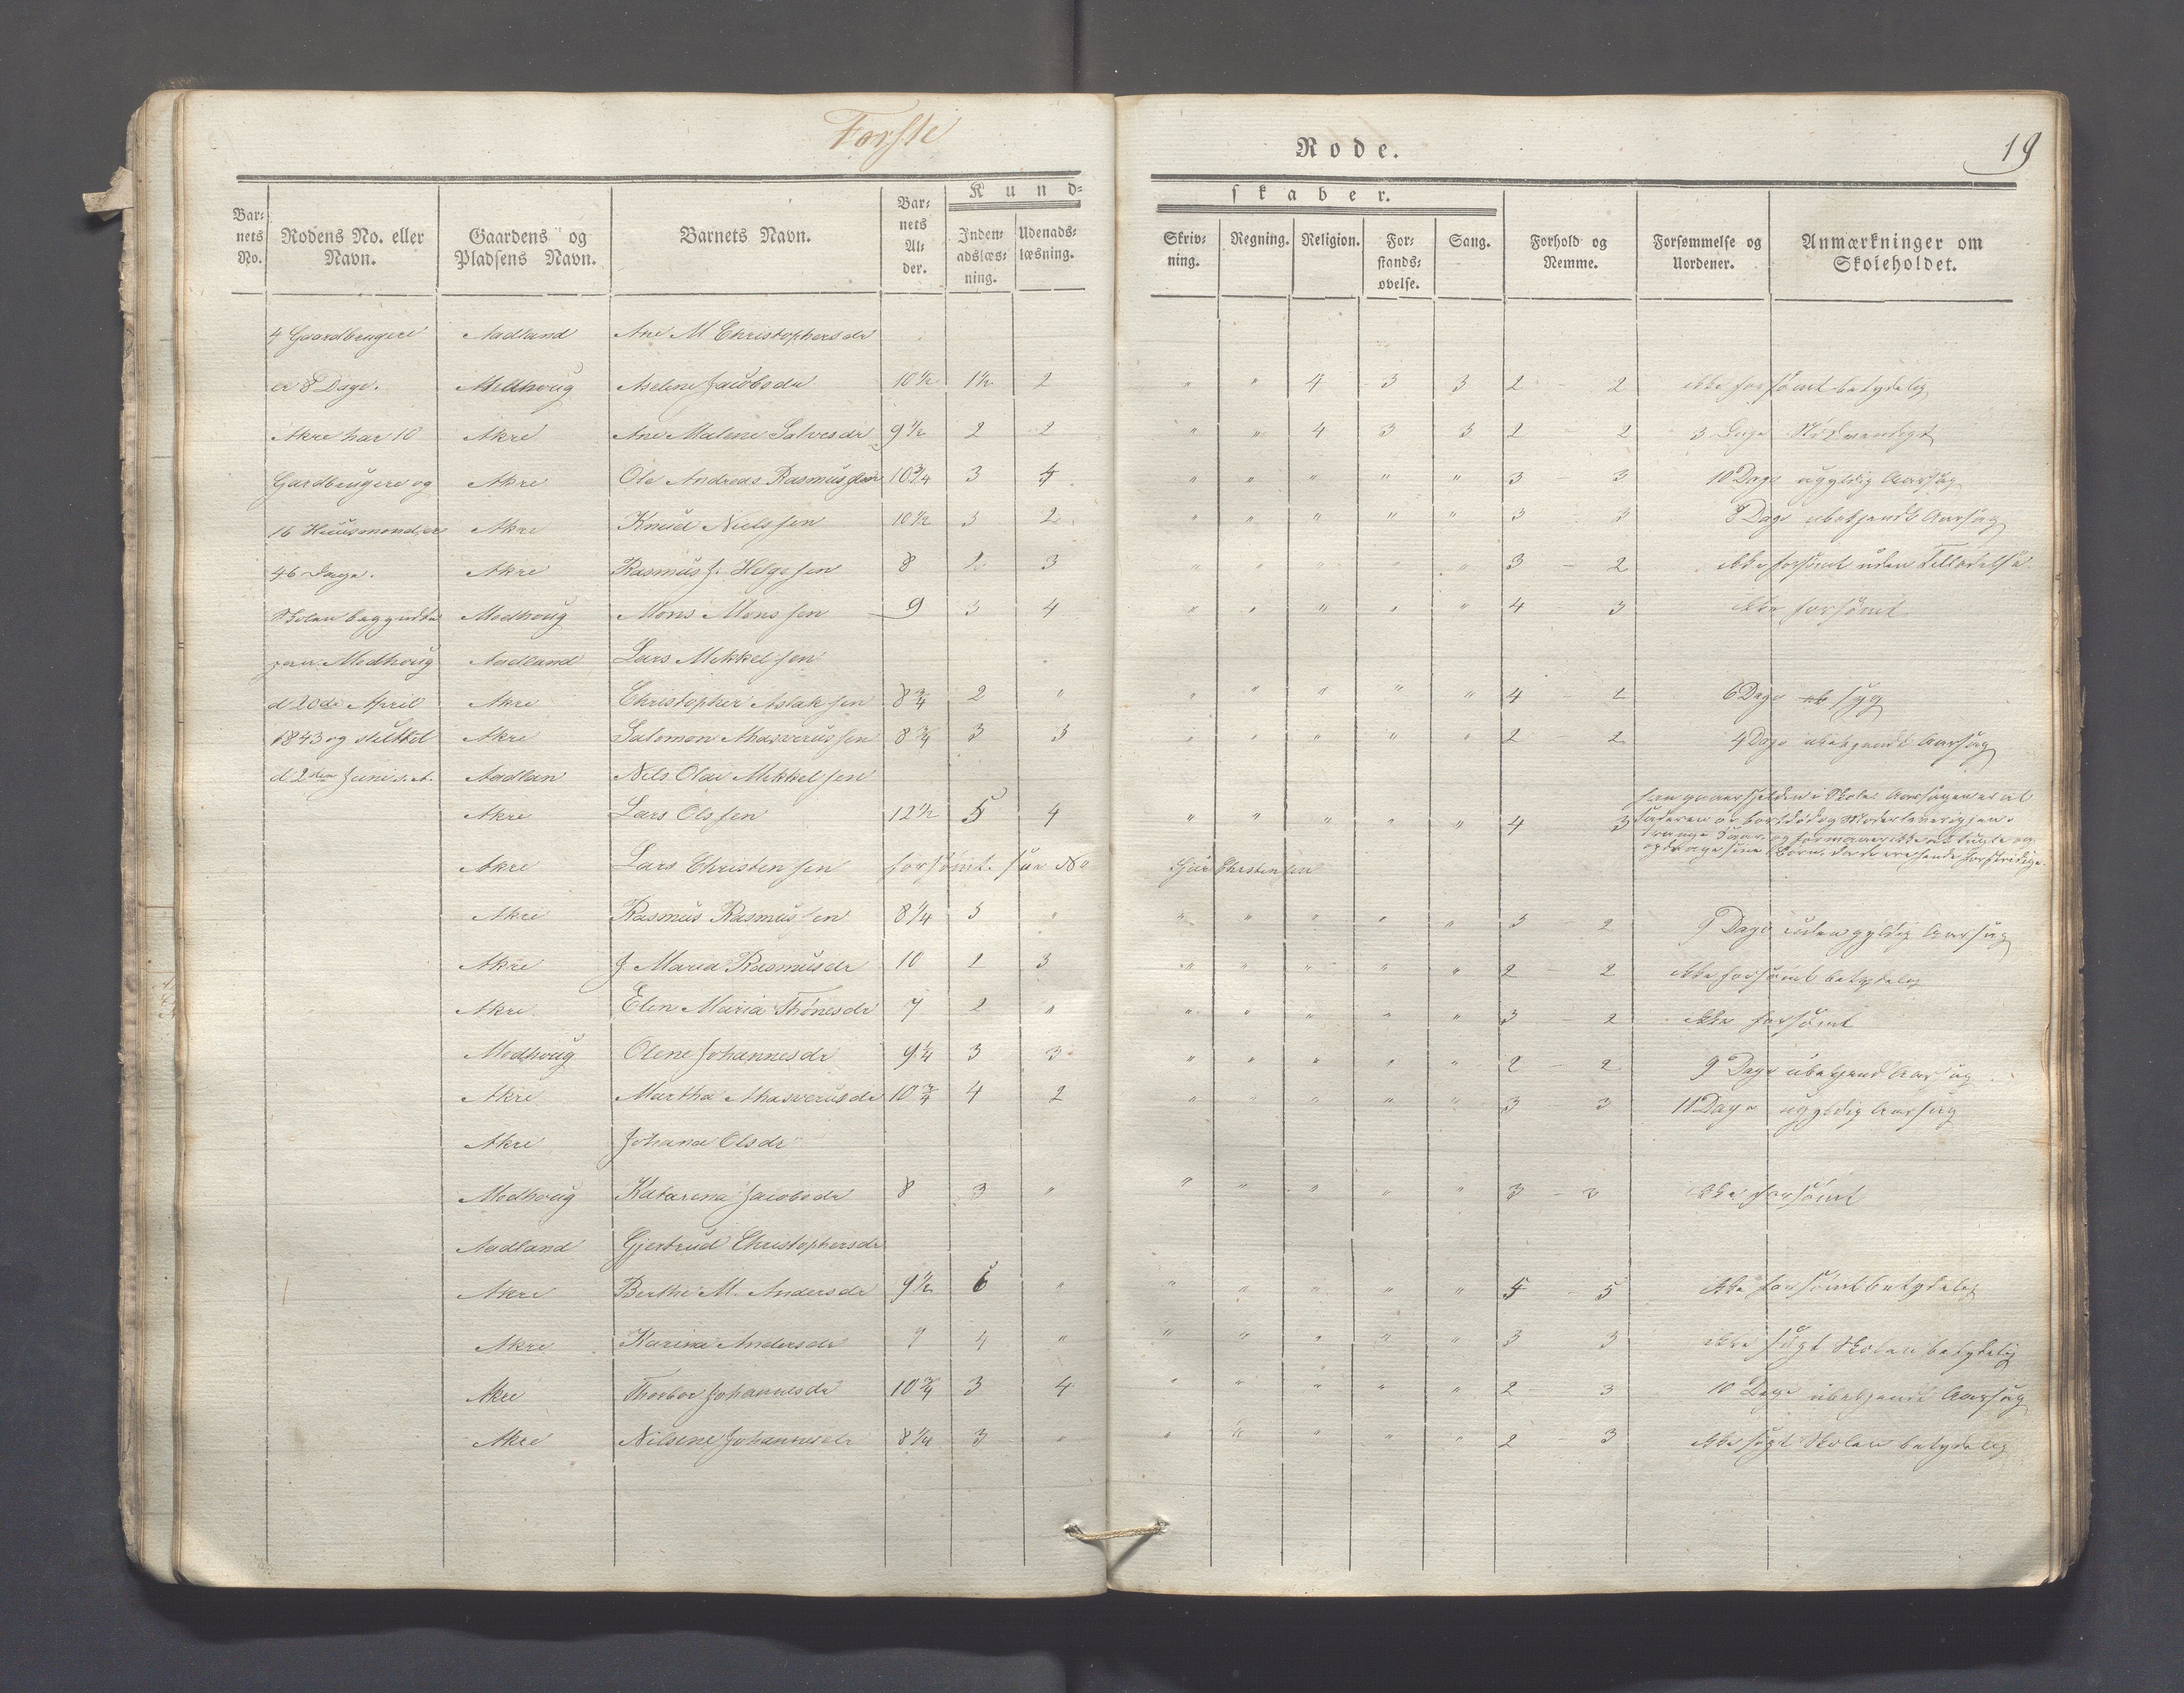 Forste
Rode.
19
Kund-
skaber.
Bar-
nets
No.
Rodens No. eller
Navn.
Gaardens og
Pladsens Navn.
Barnets Navn.
Bar-
nets
Al-
der.
Inden-
adslæs-
ning.
Udenads-
læsning.
Skriv-
ning.
Regning.
Religion.
For-
stands-
øvelse.
Sang.
Forhold og
Nemme.
Forsømmelse og
Uordener.
Anmærkninger om
Skoleholdet.
4 Gaardbrugere Aadland Ane M Christophersdr
er 8 Dage. Medhoug Aselene Jacobsdr 10½ 1½ 2 " " 4 3 3 2 - 2 ikke forsømt betydelig
Akre har 10 Akre Ane Malene Salvesdr 9½ 2 2 " " 4 3 3 2 - 2 3 Dage Nødvendigt
Gardbrugere og Akre Ole Andreas Rasmussen 10¾ 3 4 " " " " " 3 - 3 10 Dage ugyldig Aarsag
16 Huusmænd, er Akre Knud Nielssen 10½ 3 2 " " " " " 3 - 3 8 Dage ubekjendt Aarsag
46 Dage. Akre Rasmus J. Helgesen 8 2 3 " " " " " 3 - 2 ikke forsømt uden Tilladelse
Skolen begyndte Medhoug Mons Monssen 9 3 4 " " " " " 4 - 3 ikke forsømt
paa Medhoug Aadland Lars Mikkelsen
d 20de April Akre Christopher Aslaksen 8¾ 2 " " " " " " 4 - 2 6 Dage syg
1843 og sluttet Akre Salomon Ahasverussen 8¾ 3 3 " " " " " 2 - 2 4 Dage ubekjendt Aarsag
d 2den Juni s. A. Aadlan Nils Olai Mikkelsen
Akre Lars Olssen 12½ 5 4 " " " " " 4 3
han gaaer sjelden i Skole Aarsagen er at
Faderen er bortdød og Moder
trange Kaar, og formaaer ikke at tugte og
opdrage sine Børn, da de ere
Akre Lars Christensen forsømt. see No Christensen
Akre Rasmus Rasmussen 8¼ 3 " " " " " " 3 - 2 9 Dage uden gyldig Aarsag
Akre J Maria Rasmusdr 10 2 3 " " " " " 2 - 2 ikke forsømt betydelig
Akre Elen Maria Thönesdr 7 2 " " " " " " 3 - 2 ikke forsømt
Medhoug Olene Johannesdr 9¼ 3 3 " " " " " 2 - 2 9 Dage ubekjend Aarsag
Akre Martha Ahasverusdr 10¾ 4 2 " " " " " 3 3 11 Dage ugyldig Aarsag
Akre Johana Olsdr
Medhoug Katarena Jacobsdr 8 3 " " " " " " 3 - 3 ikke forsømt
Aadland Gjertrud Christophersdr
Akre Berthe M. Andersdr 9½ 6 " " " " " " 5 - 5 ikke forsømt betydelig
Akre Karina Andersdr 9 4 " " " " " " 3 3 ikke søgt Skolen betydelig
Akre Thorbor Johannesdr 10¾ 3 4 " " " " " 2 - 3 10 Dage ubekjendt Aarsag
Akre Nilsene Johannesdr 8¼ 3 " " " " " " 2 - 3 ikke søgt Skolen betydelig